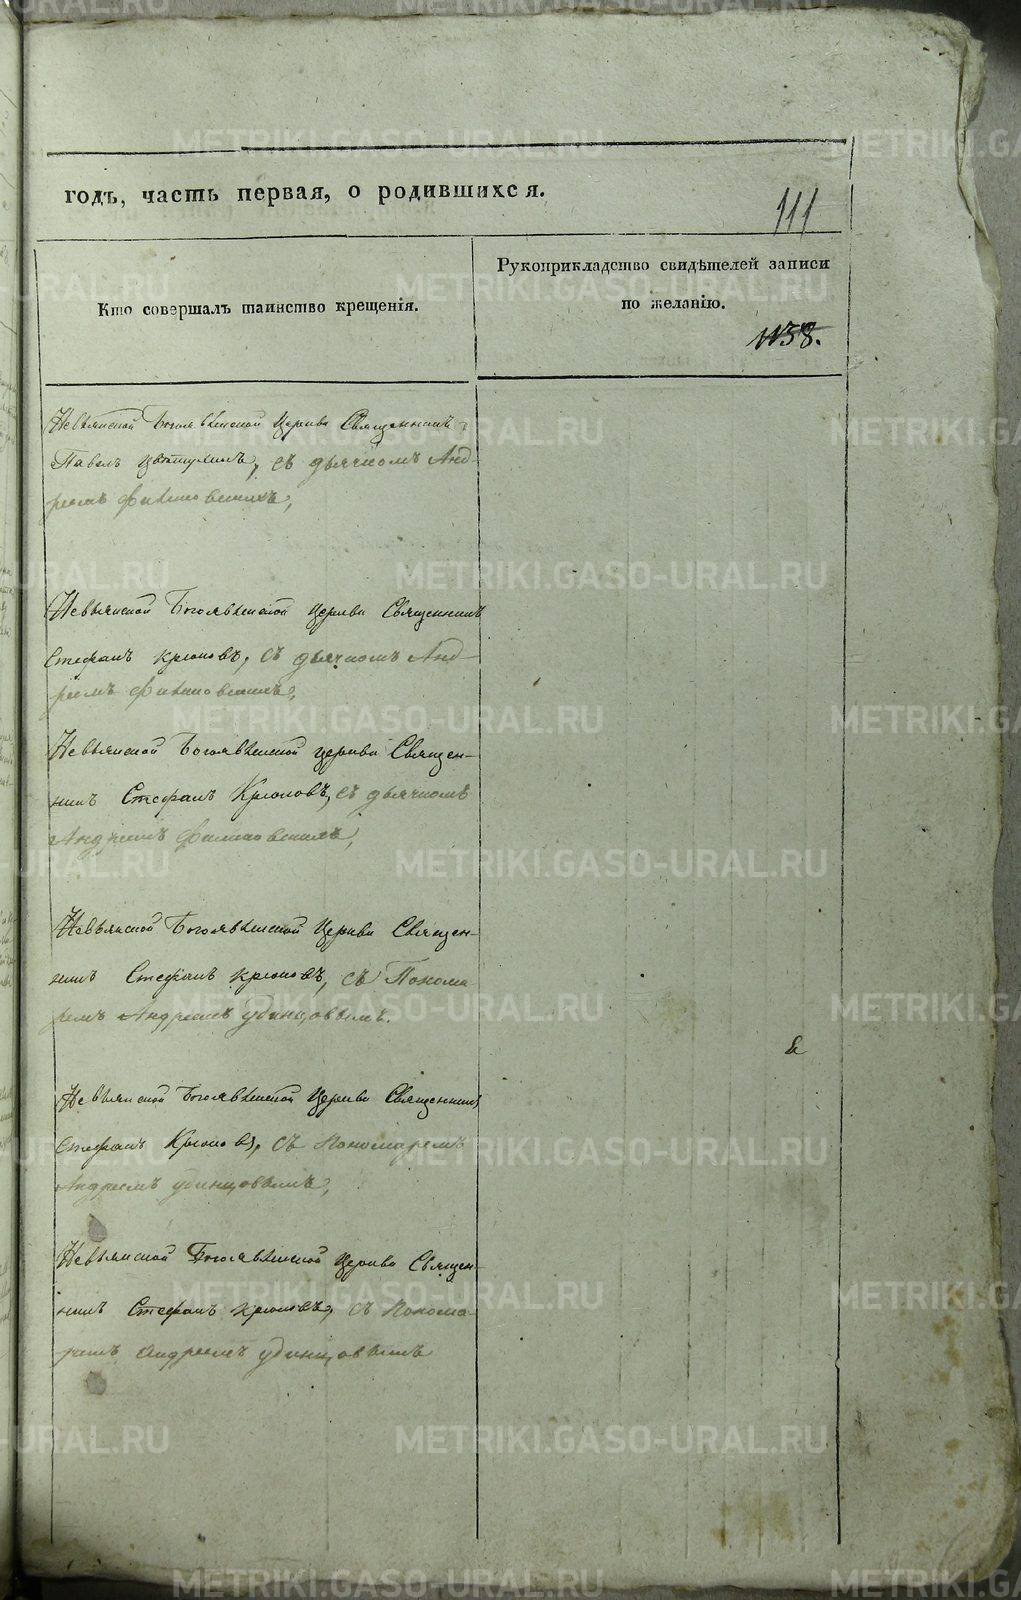 годъ, часть первая, о родившихся.
111
Кто совершалъ таинство крещенія.
Рукоприкладство свидѣтелей записи
по желанію.
1138.
Невьянской Богоявленской Церкви Священникъ
Павелъ, съ дьячкомъ Анд-
реемъ
Невьянской Богоявленской Церкви Священникъ
Стефанъ Крюковъ, съ дьячкомъ Анд-
реемъ
Невьянской Богоявленской церкви Священ-
никъ Стефанъ Крюковъ, съ дьячкомъ
Андреемъ
Невьянской Богоявленской Церкви Священ-
никъ Стефанъ Крюковъ, съ Понома
ремъ Андреемъ Удинцовымъ.
Невьянской Богоявленской Церкви Священникъ
Стефанъ Крюковъ, съ Пономаремъ
Андреемъ Удинцовымъ,
Невьянской Богоявленской Церкви Священ-
никъ Стефанъ Крюковъ, съ Понома-
ремъ Андреемъ Удинцовымъ
METRIKI.GASO-URAL.RU